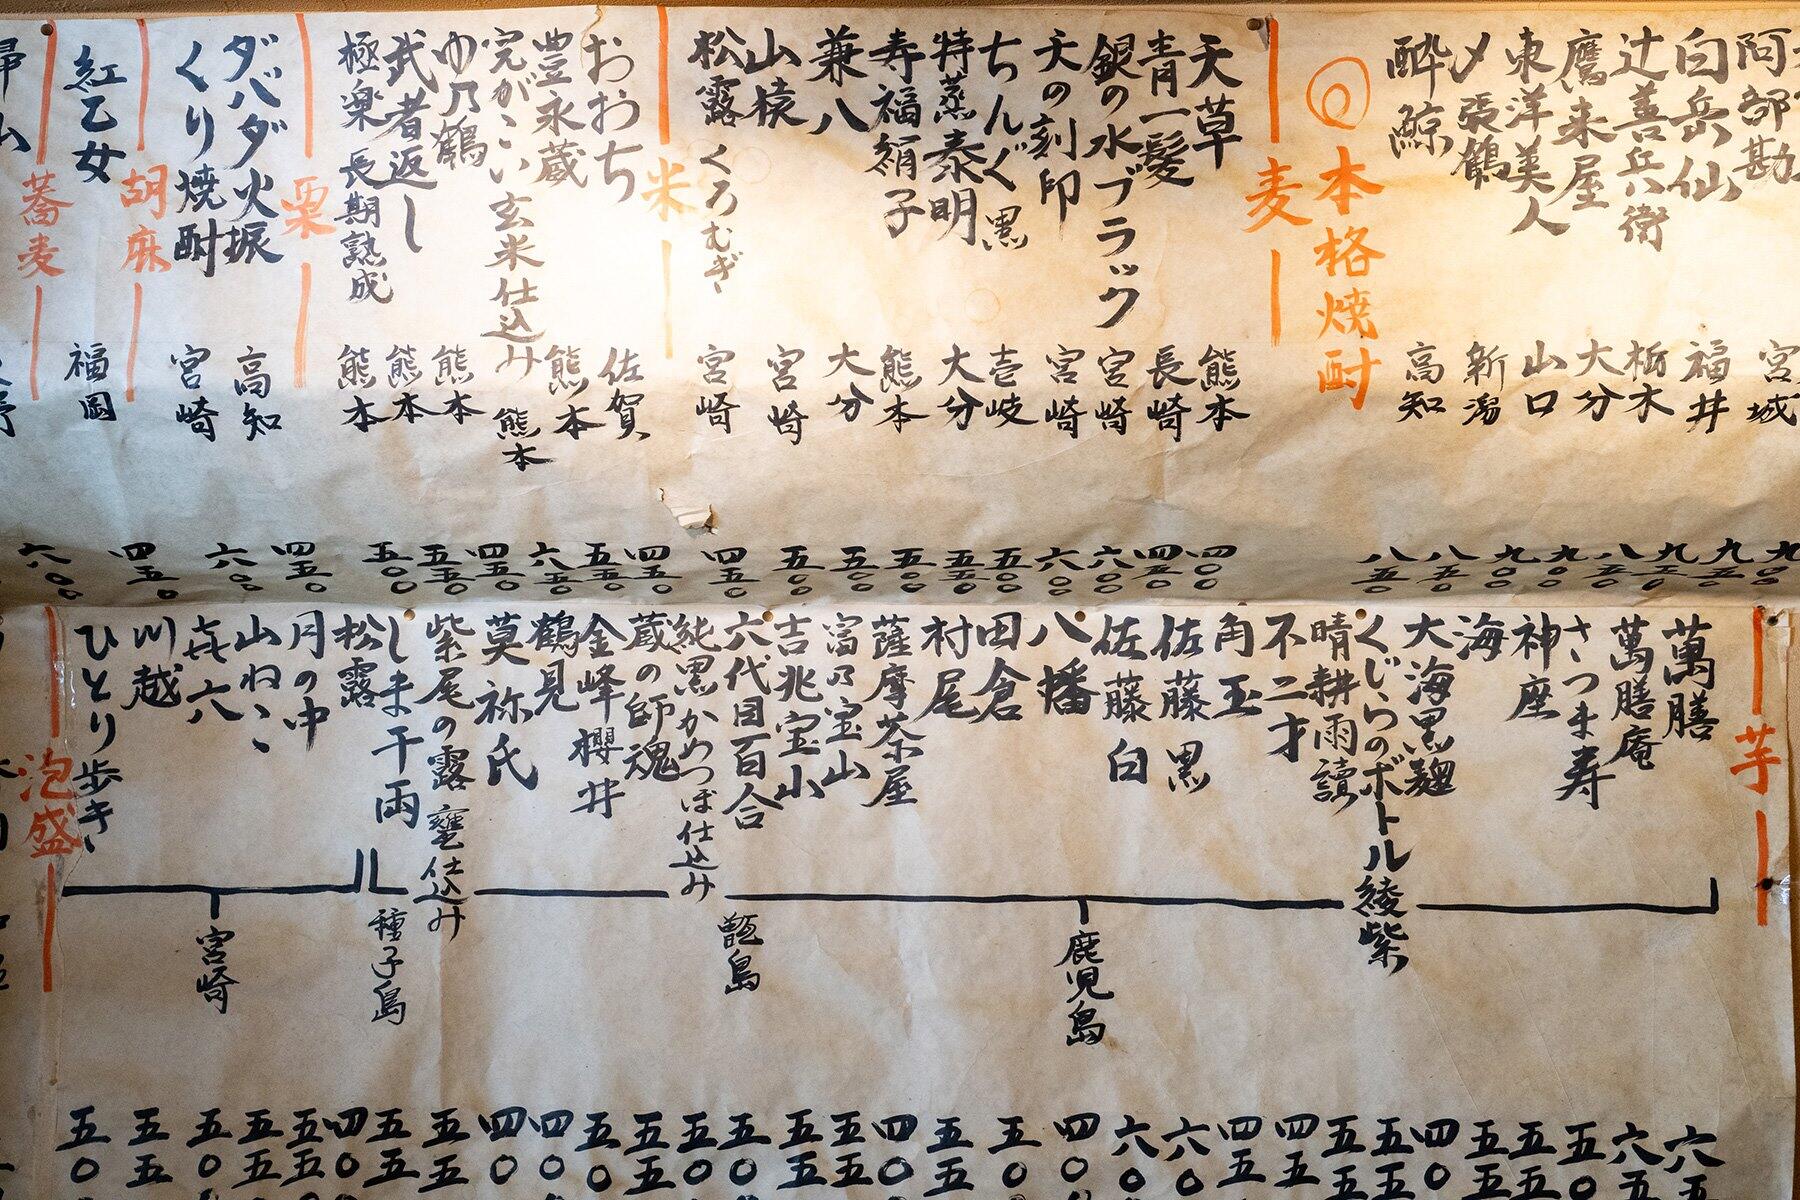 阿部勘 宮城 九〇〇
白岳仙 福井 九五〇
辻善兵衛 栃木 九五〇
鷹来屋 大分 八五〇
東洋美人 山口 九〇〇
〆張鶴 新潟 八五〇
酔鯨 高知 八五〇
◎本格焼酎
麦
天草 熊本 四〇〇
青一髪 長崎 四五〇
銀の水ブラック 宮崎 六〇〇
天の刻印 宮崎 六〇〇
ちんぐ黒 壱岐 五〇〇
特蒸泰明 大分 五五〇
寿福絹子 熊本 五〇〇
兼八 大分 五五〇
山猿 宮崎 五〇〇
松露くろむぎ 宮崎 四五〇
米
おおち 佐賀 四五〇
豊永蔵 熊本 五五〇
完がこい玄米仕込み 熊本 六五〇
ゆ乃鶴 熊本 四五〇
武者返し 熊本 五五〇
極楽 長期熟成 熊本 五〇〇
栗
ダバダ火振 高知 四五〇
くり焼酎 宮崎 六〇〇
胡麻
紅乙女 福岡 四五〇
蕎麦
六〇〇
芋
萬膳
萬膳庵
さつま寿
神座
海
大海黒麹
くじらのボトル綾紫
晴耕雨讀
不二才
角玉
佐藤 黒
佐藤 白
八幡
田倉
村尾
薩摩茶屋
富乃宝山
吉兆宝山
六代目百合
純黒かめつぼ仕込み
蔵の師魂
金峰櫻井
鶴見
莫祢氏
紫尾の露 甕仕込み
しま千両
松露
月の中
山ねこ
㐂六
川越
ひとり歩き
鹿児島
甑島
種子島
宮崎
泡盛